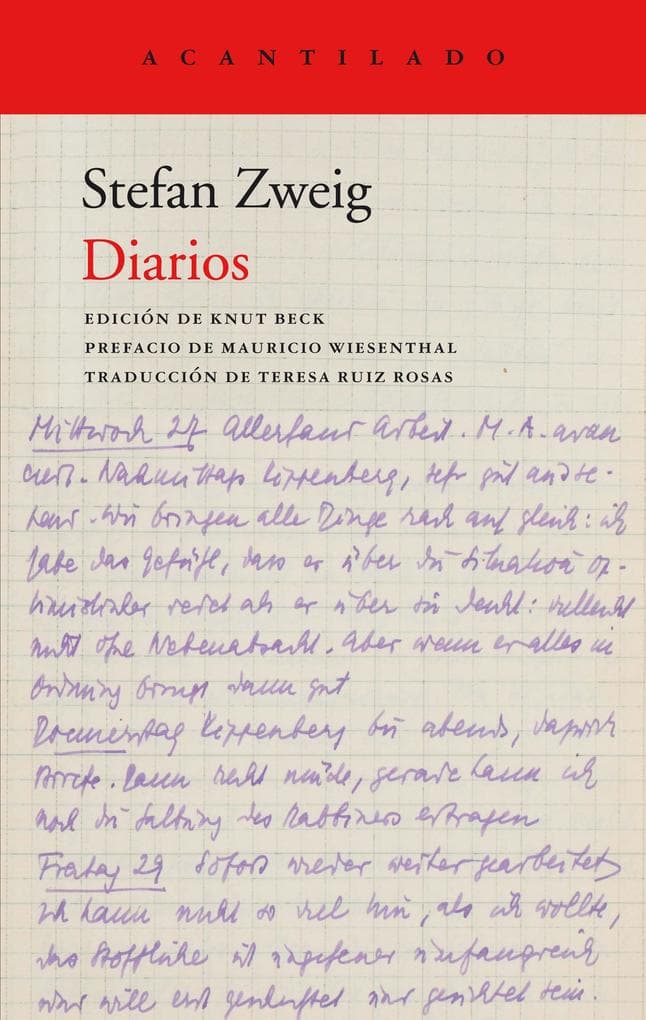 ACANTILADO
Stefan Zweig
Diarios
EDICIÓN DE KNUT BECK
PREFACIO DE MAURICIO WIESENTHAL
TRADUCCIÓN DE TERESA RUIZ ROSAS
Mittwoch 27 Allerhand Arbeit. M. A. avan
ciert. Nachmittags Kippenberg, sehr gut
Wir bringen alle Dinge rasch auf gleich: ich
habe das Gefühl, dass er über die Situation op-
timistischer redet als er über sie denkt: vielleicht
nicht ohne Nebenabsicht. Aber wenn er alles in
Ordnung bringt dann gut
Donnerstag Kippenberg bis abends, dazwisch
Briefe. Dann recht müde, gerade kann ich
noch die Salbung des Rabbiners ertragen
Freitag 29 Sofort wieder weiter gearbeitet,
ich kann nicht so viel tun, als ich wollte,
das Stoffliche ist ungeheuer umfangreich
und will erst gesichtet sein.